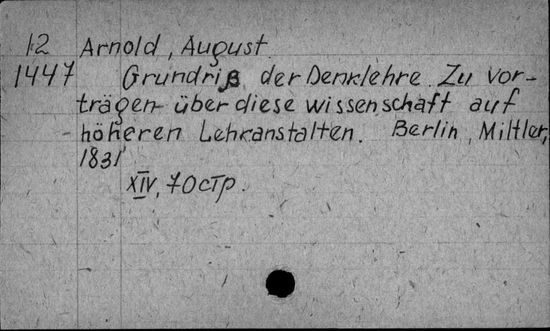 12 Arnold, August
1447 Grundriß der Denklehre Zu Vor-
trägen über diese wissenschaft auf
höheren Lehranstalten. Berlin, Mittler,
1831
XIV, 70 стр.